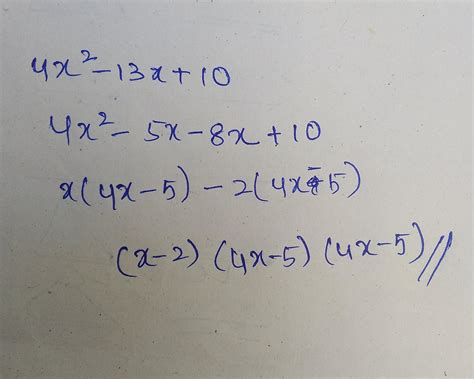 4x²-13x+10
4x²-5x-8x+10
x(4x-5)-2(4x-5)
(x-2)(4x-5)(4x-5)//